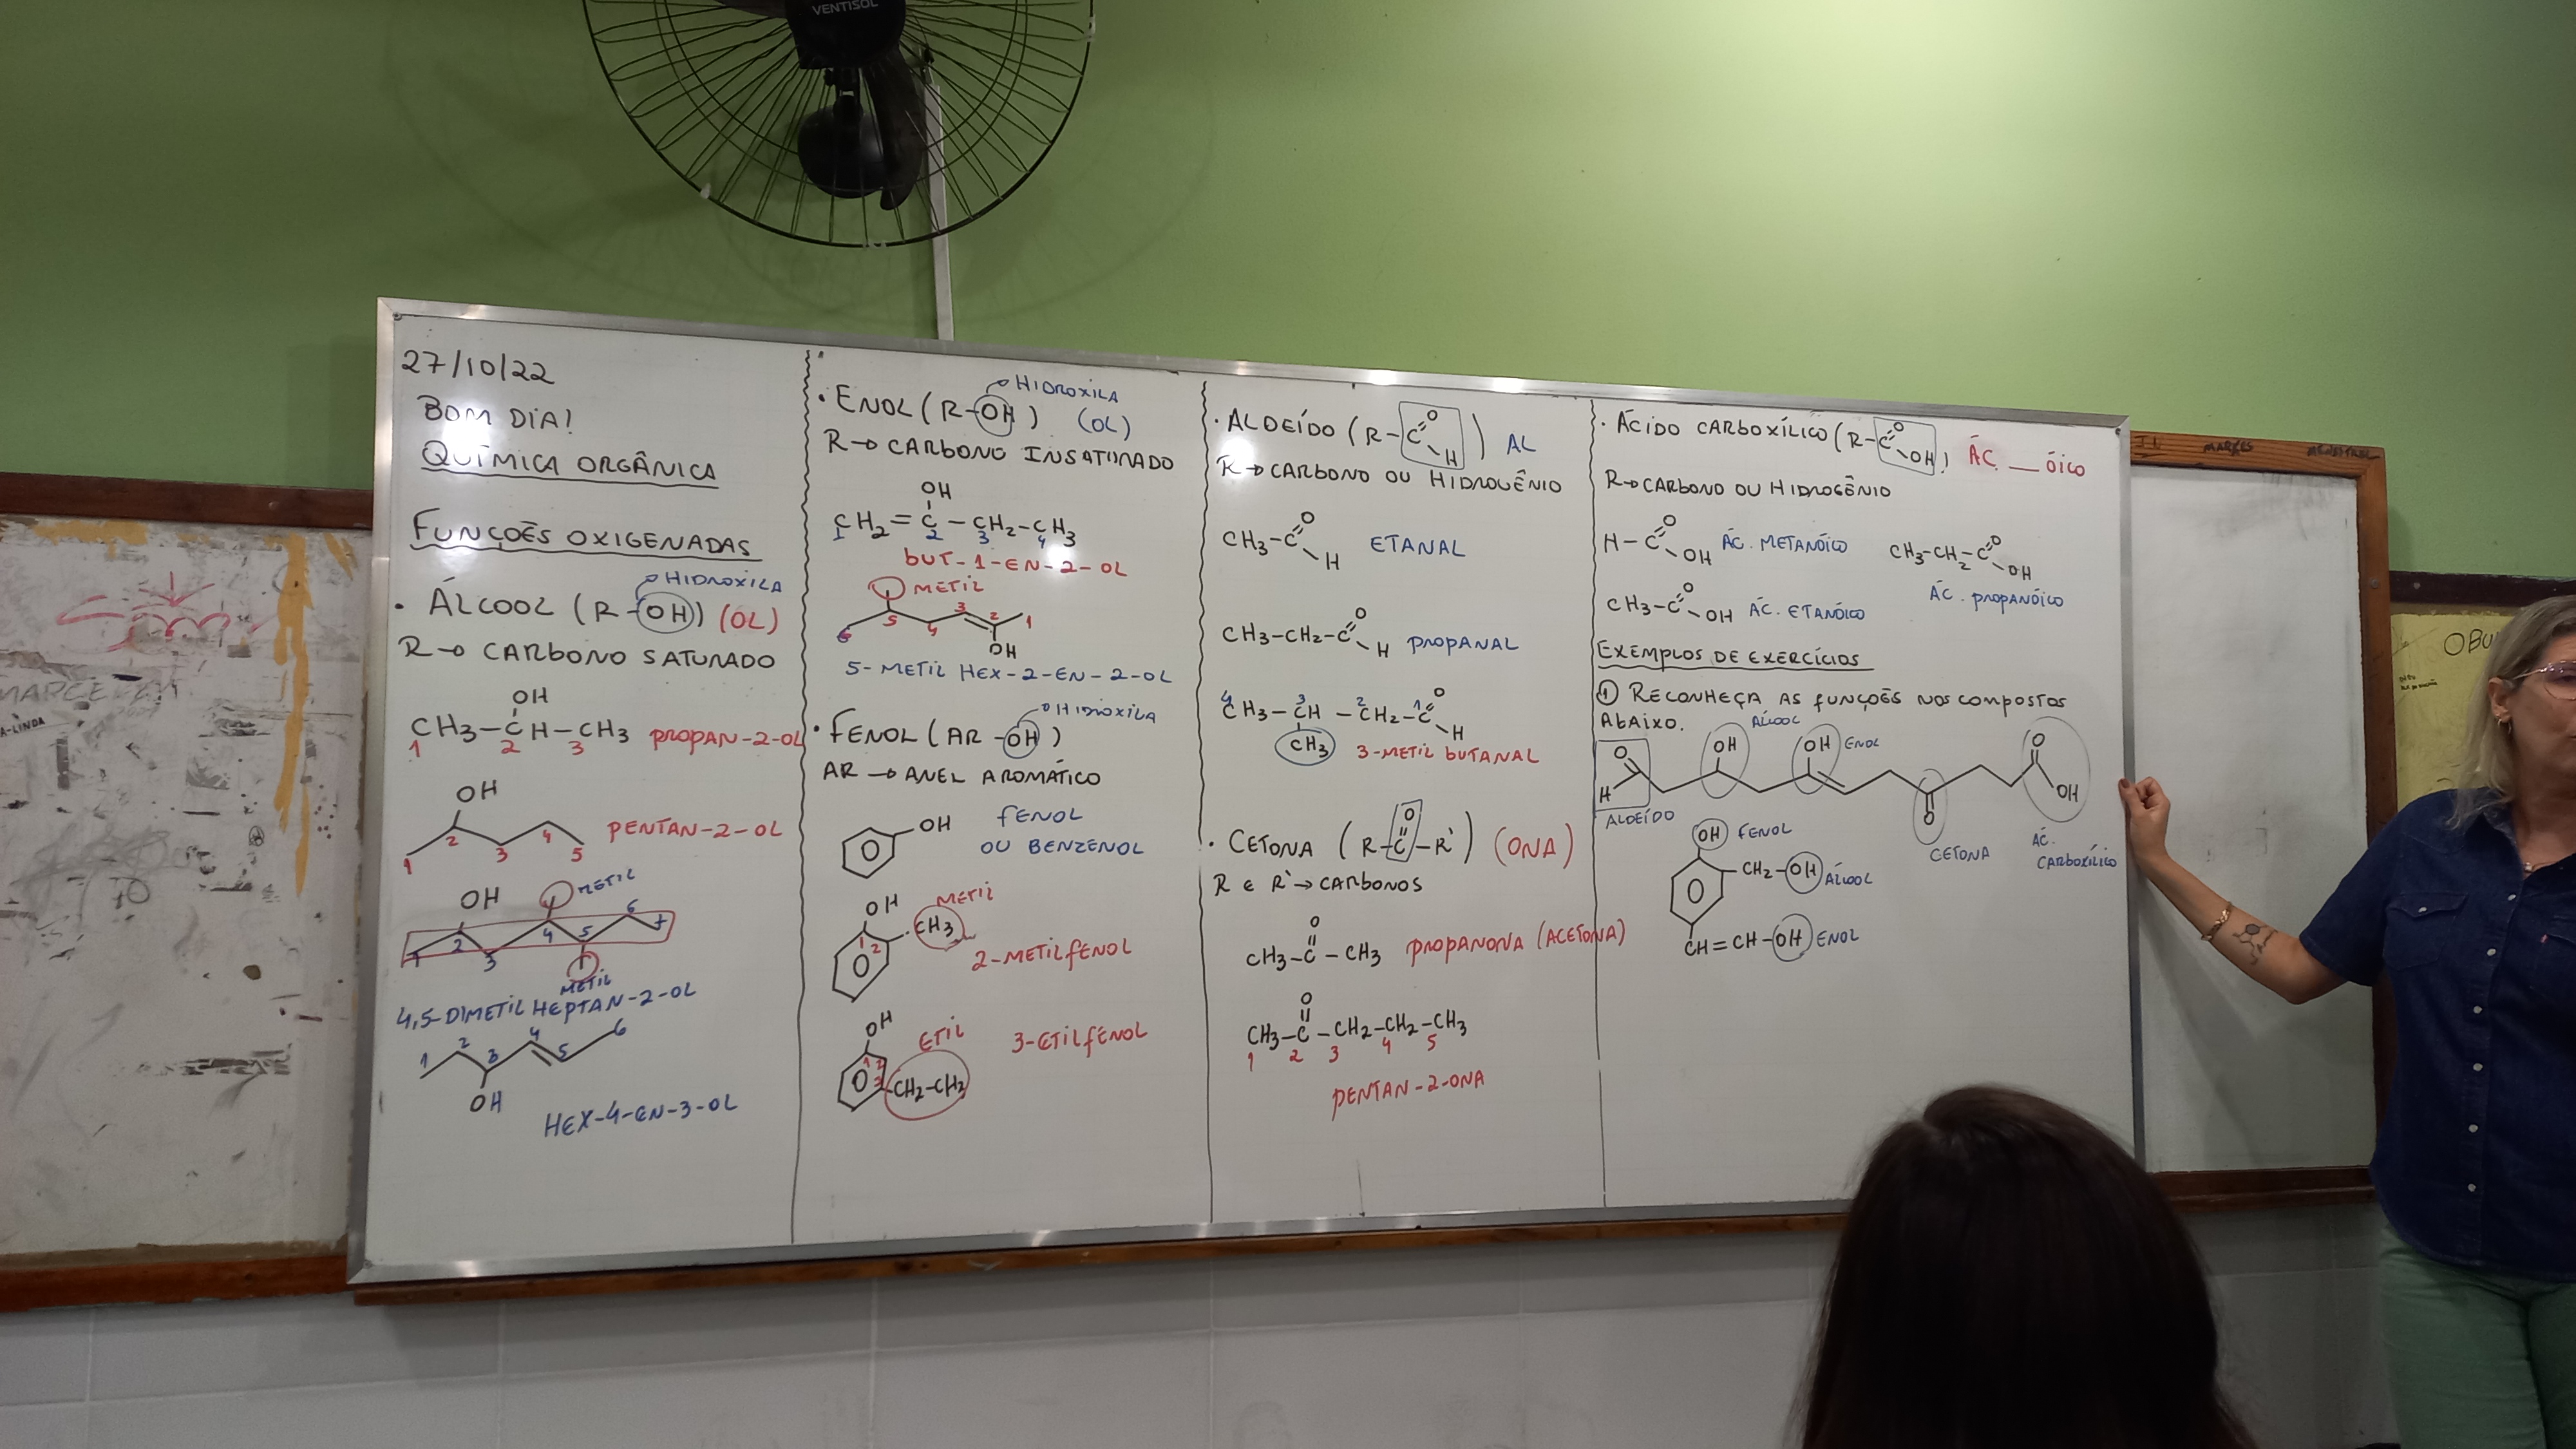 VENTISOL
27/10/22
BOM DIA!
QUÍMICA ORGÂNICA
FUNÇOÊS OXIGENADAS
HIDROXILA
• ÁLCOOL (R-OH) (OL)
R→ CARBONO SATURADO
OH
CH3-CH-CH3 PROPAN-2-OL
1 2 3
OH
PENTAN-2-OL
1 2 3 4 5
OH METIL
1 2 3 4 5 6 7
METIL
4,5-DIMETIL HEPTAN-2-OL
1 2 3 4 5 6
OH
HEX-4-EN-3-OL
HIDROXILA
• ENOL (R-OH) (OL)
R→ CARBONO INSATURADO
OH
CH2=C-CH2-CH3
1 2 3 4
BUT-1-EN-2-OL
METIL
6 5 4 3 2 1
OH
5-METIL HEX-2-EN-2-OL
HIDROXILA
• FENOL (AR-OH)
AR→ ANEL AROMÁTICO
OH FENOL
OU BENZENOL
OH METIL
1 2 CH3
2-METILFENOL
OH ETIL 3-ETILFENOL
1 2 3 CH2-CH3
• ALDEÍDO (R-C=O H) AL
R→ CARBONO OU HIDROGÊNIO
O
CH3-C H ETANAL
O
CH3-CH2-C H PROPANAL
4 3 2 1 O
CH3-CH-CH2-C H
CH3 3-METIL BUTANAL
O
• CETONA (R-C-R') (ONA)
R E R'→ CARBONOS
O
CH3-C-CH3 PROPANONA (ACETONA)
O
CH3-C-CH2-CH2-CH3
1 2 3 4 5
PENTAN-2-ONA
• ÁCIDO CARBOXÍLICO (R-C=O OH) ÁC. __ ÓICO
R→ CARBONO OU HIDROGÊNIO
H-C=O OH ÁC. METANÓICO
CH3-CH2-C=O OH
ÁC. PROPANÓICO
CH3-C=O OH ÁC. ETANÓICO
EXEMPLOS DE EXERCÍCIOS
① RECONHEÇA AS FUNÇOÊS NOS COMPOSTOS
ABAIXO.
ÁLCOOL
O OH OH ENOL O
H OH
ALDEÍDO
O
CETONA
ÁC.
CARBOXÍLICO
OH FENOL
CH2-OH ÁLCOOL
CH=CH-OH ENOL